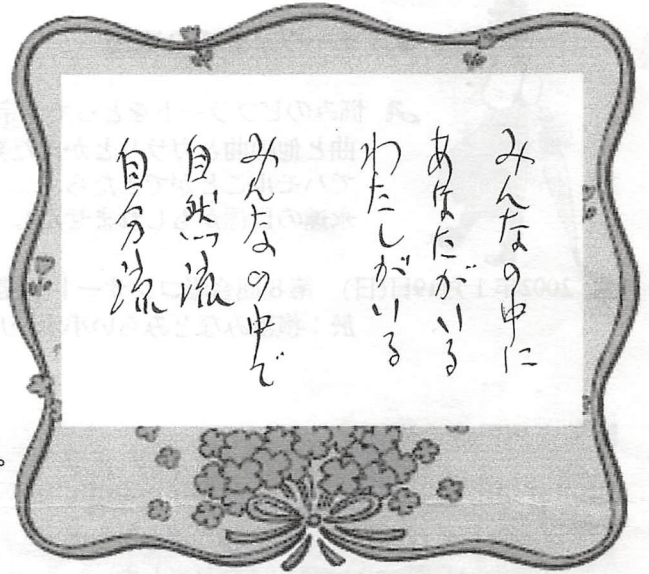 みんなの中に
あなたがいる
わたしがいる
みんなの中で
自然流
自分流